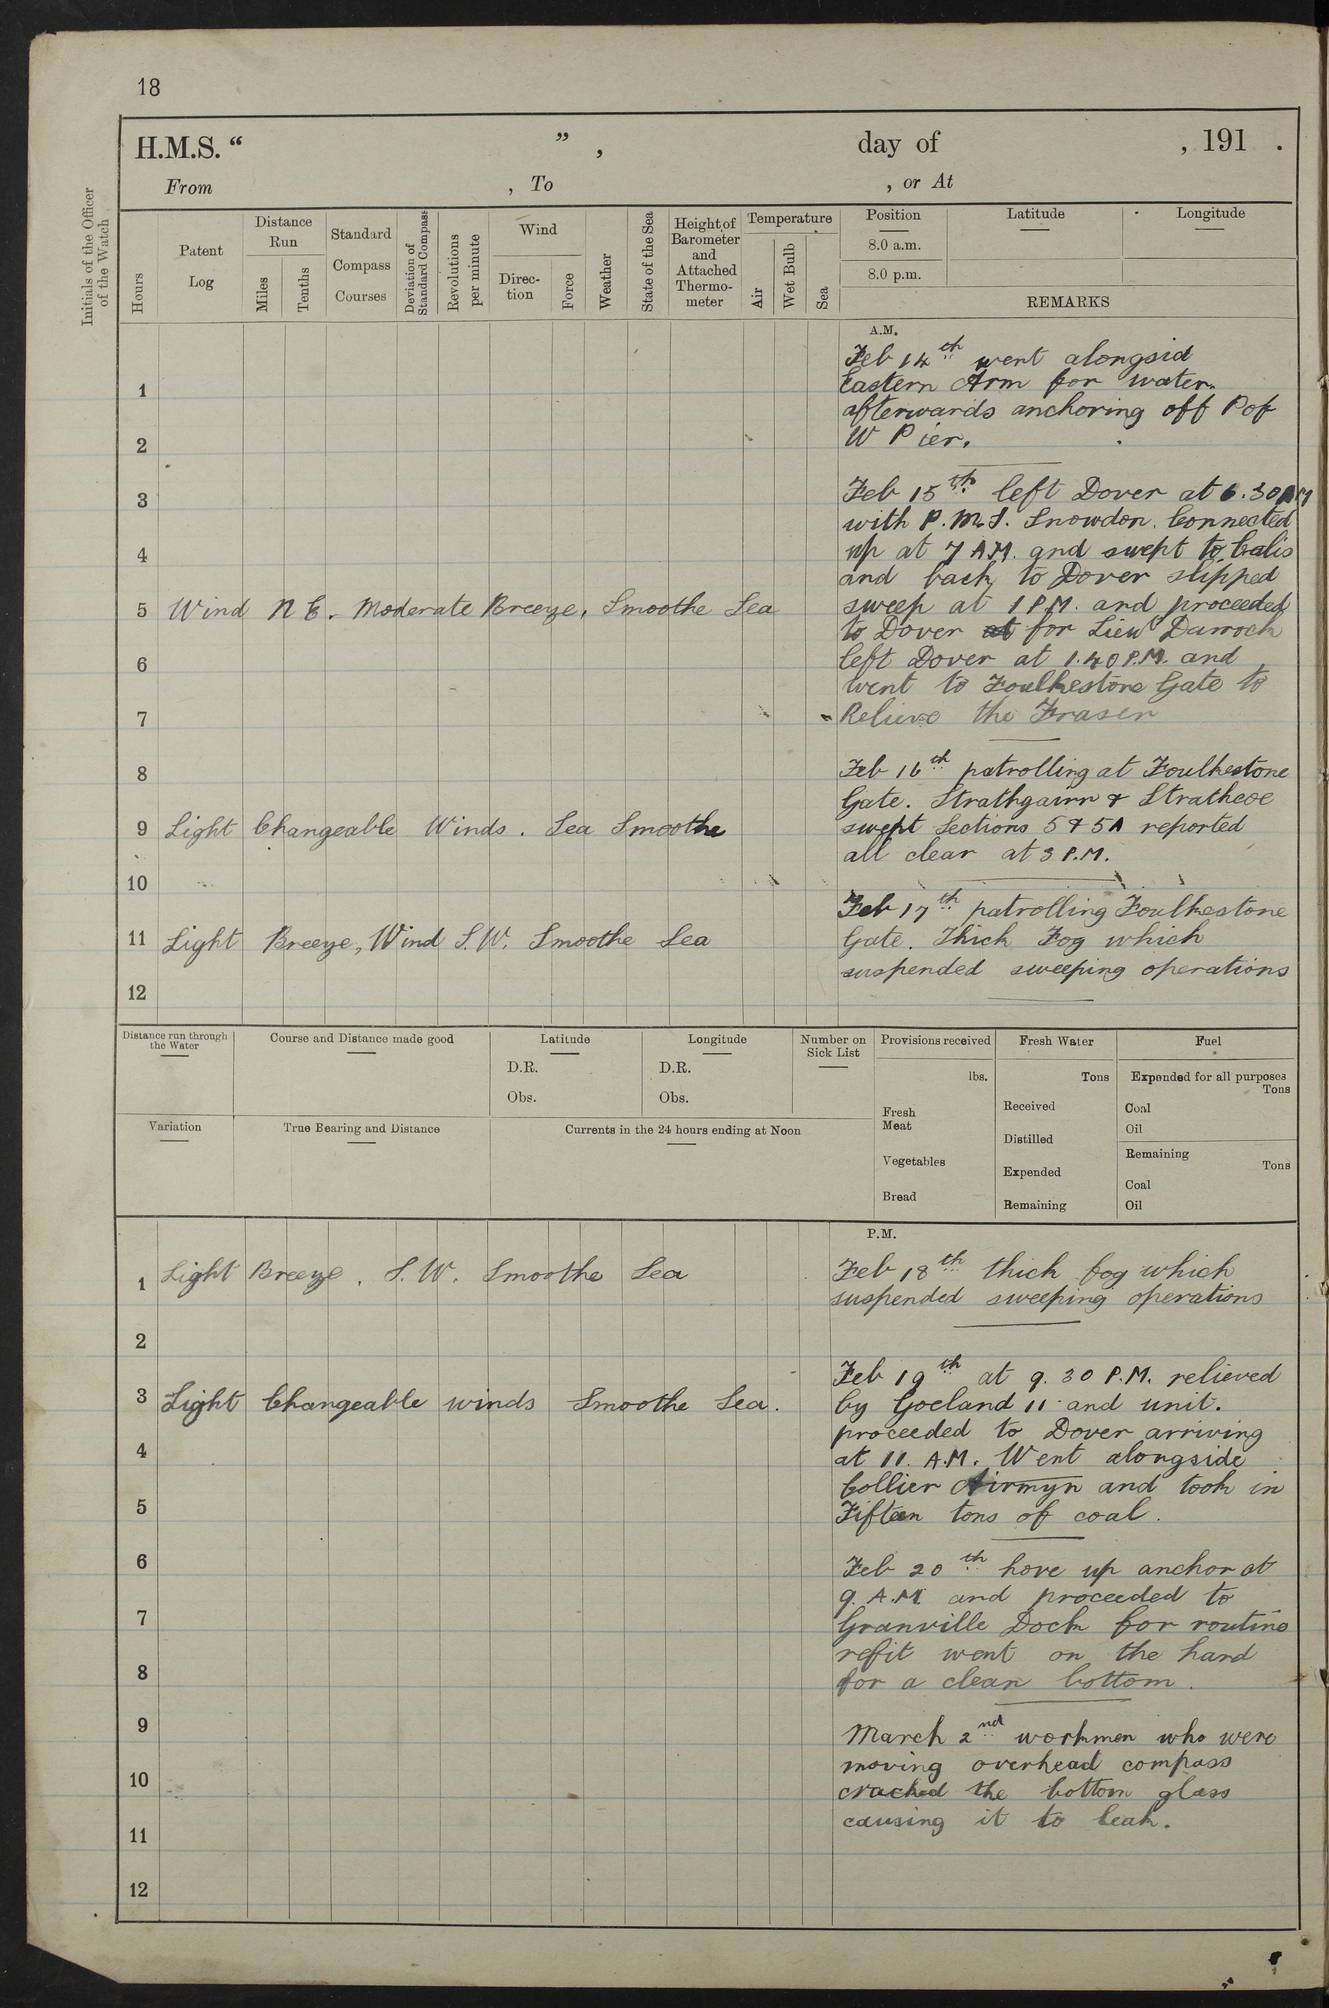 18
H.M.S. “ ” , day of , 191 .
From , To , or At
Initials of the Officer
of the Watch
Hours
Patent
Log
Distance
Run
Miles
Tenths
Standard
Compass
Courses
Deviation of
Standard Compass
Revolutions
per minute
Wind
Direc-
tion
Force
Weather
State of the Sea
Height of
Barometer
and
Attached
Thermo-
meter
Temperature
Air
Wet Bulb
Sea
Position
8.0 a.m.
8.0 p.m.
Latitude
Longitude
REMARKS
A.M.
Feb 14th went alongsid
1 Eastern Arm for water.
afterwards anchoring off P of
2 W Pier.
3 Feb 15th left Dover at 6.30 AM
with P.M.S. Snowdon. Connected
4 up at 7 A.M. and swept to Calis
and back to Dover slipped
5 Wind N E. Moderate Breeze, Smoothe Sea sweep at 1 P.M. and proceeded
to Dover at for Lieut Darroch
6 left Dover at 1.40 P.M. and
went to Foulkestone Gate to
7 Relieve the Fraser
8 Feb 16th patrolling at Foulkestone
Gate. Strathgairn & Strathcoe
9 Light Changeable Winds. Sea Smoothe swept Sections 5 & 5A reported
all clear at 3 P.M.
10
Feb 17th patrolling Foulkestone
11 Light Breeze, Wind S.W. Smoothe Sea Gate. Thick Fog which
suspended sweeping operations
12
Distance run through
the Water
Course and Distance made good
Latitude
D.R.
Obs.
Longitude
D.R.
Obs.
Number on
Sick List
Provisions received
lbs.
Fresh
Meat
Vegetables
Bread
Fresh Water
Tons
Received
Distilled
Expended
Remaining
Fuel
Expended for all purposes
Tons
Coal
Oil
Remaining
Tons
Coal
Oil
Variation
True Bearing and Distance
Currents in the 24 hours ending at Noon
P.M.
1 Light Breeze. S.W. Smoothe Sea Feb 18th thick fog which
suspended sweeping operations
2
Feb 19th at 9.30 P.M. relieved
3 Light Changeable winds Smoothe Sea. by Goeland 11 and unit.
proceeded to Dover arriving
4 at 11. A.M. Went alongside
Collier Airmyn and took in
5 Fifteen tons of coal.
6 Feb 20th hove up anchor at
9. A.M. and proceeded to
7 Granville Dock for routine
refit went on the hard
8 for a clean bottom.
9 March 2nd workmen who were
moving overhead compass
10 cracked the bottom glass
causing it to leak.
11
12